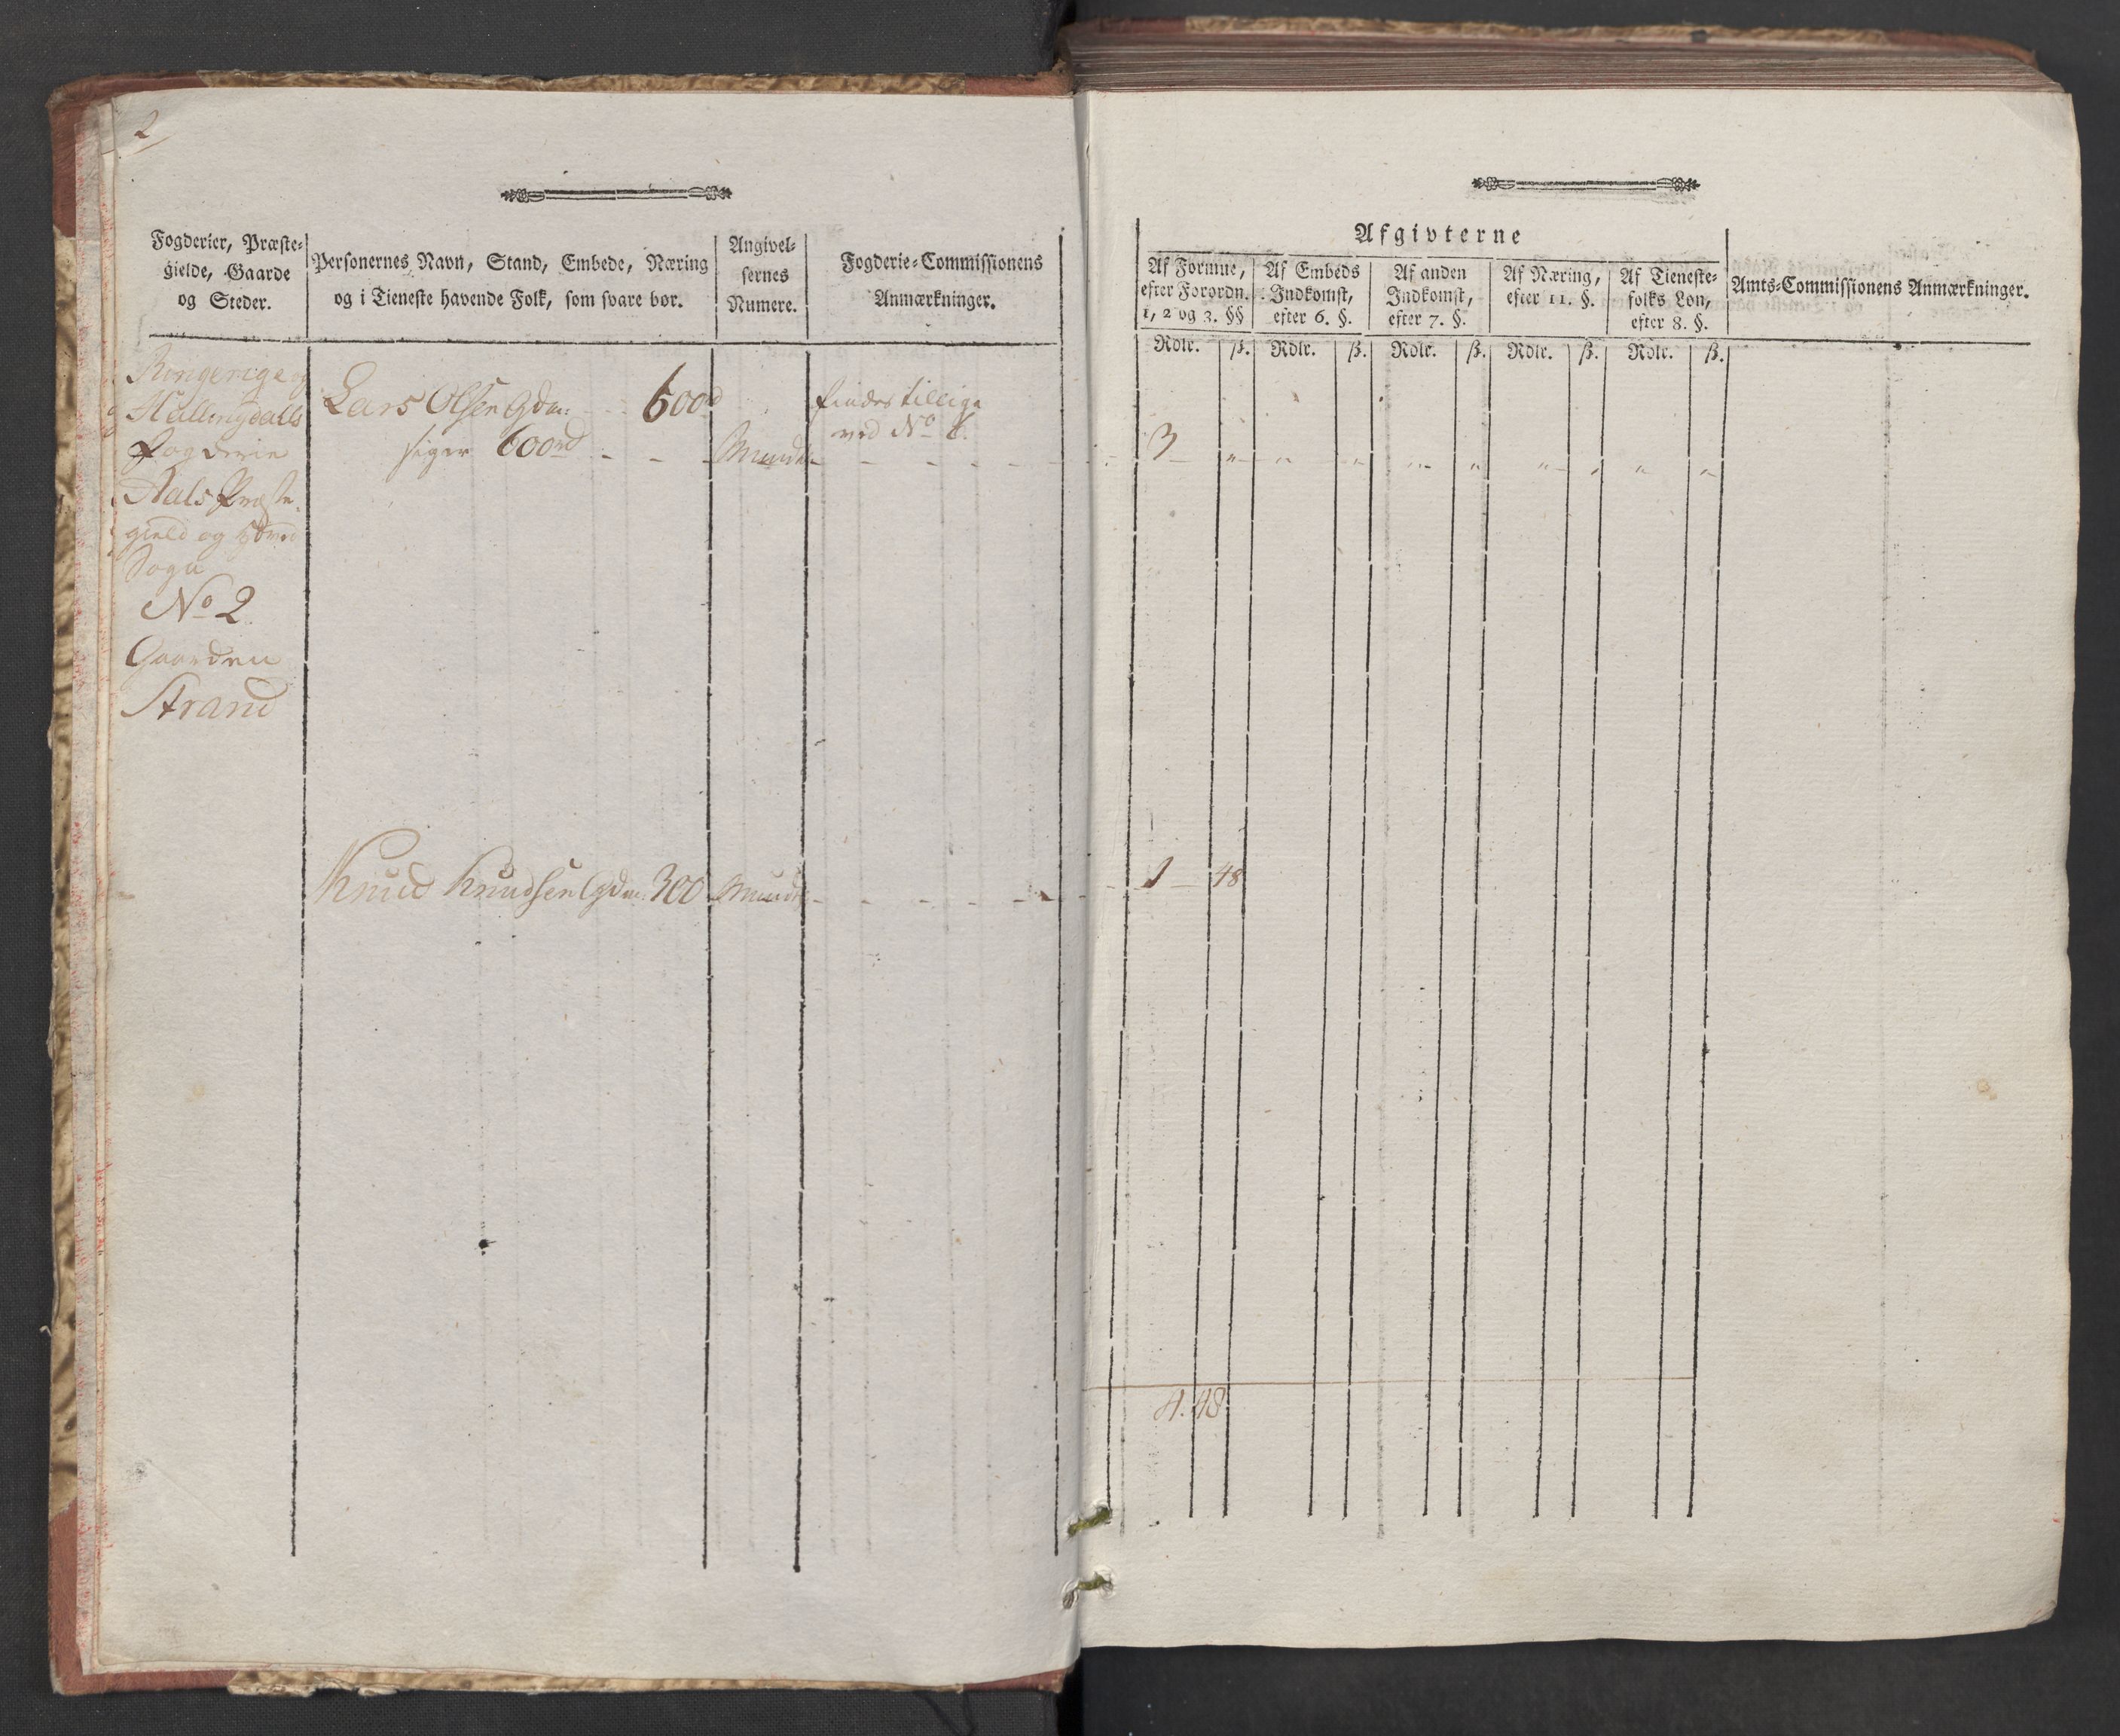 2
Fogderier, Præste-
gielde, Gaarde
og Steder.
Personernes Navn, Stand, Embede, Næring
og i Tieneste havende Folk, som svare bør.
Angivel-
sernes
Numere.
Fogderie-Commissionens
Anmærkninger.
Ringerige og
Hallingdalls
Fogderie
Aals Præste-
gield og Hoved
Sogn
No 2
Gaarden
Strand
Lars Olsen Gdm: 600rd
siger 600rd - - - Mundtl
findes tillige
ved No
Knud Knudsen Gdm: 300 Mundtl
Afgivterne
Af Formue,
efter Forordn.
1, 2 og 3. §§
Af Embeds
Indkomst,
efter 6. §.
Af anden
Indkomst,
efter 7. §.
Af Næring,
efter 11. §.
Af Tieneste-
folks Løn,
efter 8. §.
Amts-Commissionens Anmærkninger.
Rdlr. ß. Rdlr. ß. Rdlr. ß. Rdlr. ß. Rdlr. ß.
3 " " " " " " " " "
1 48
4.48